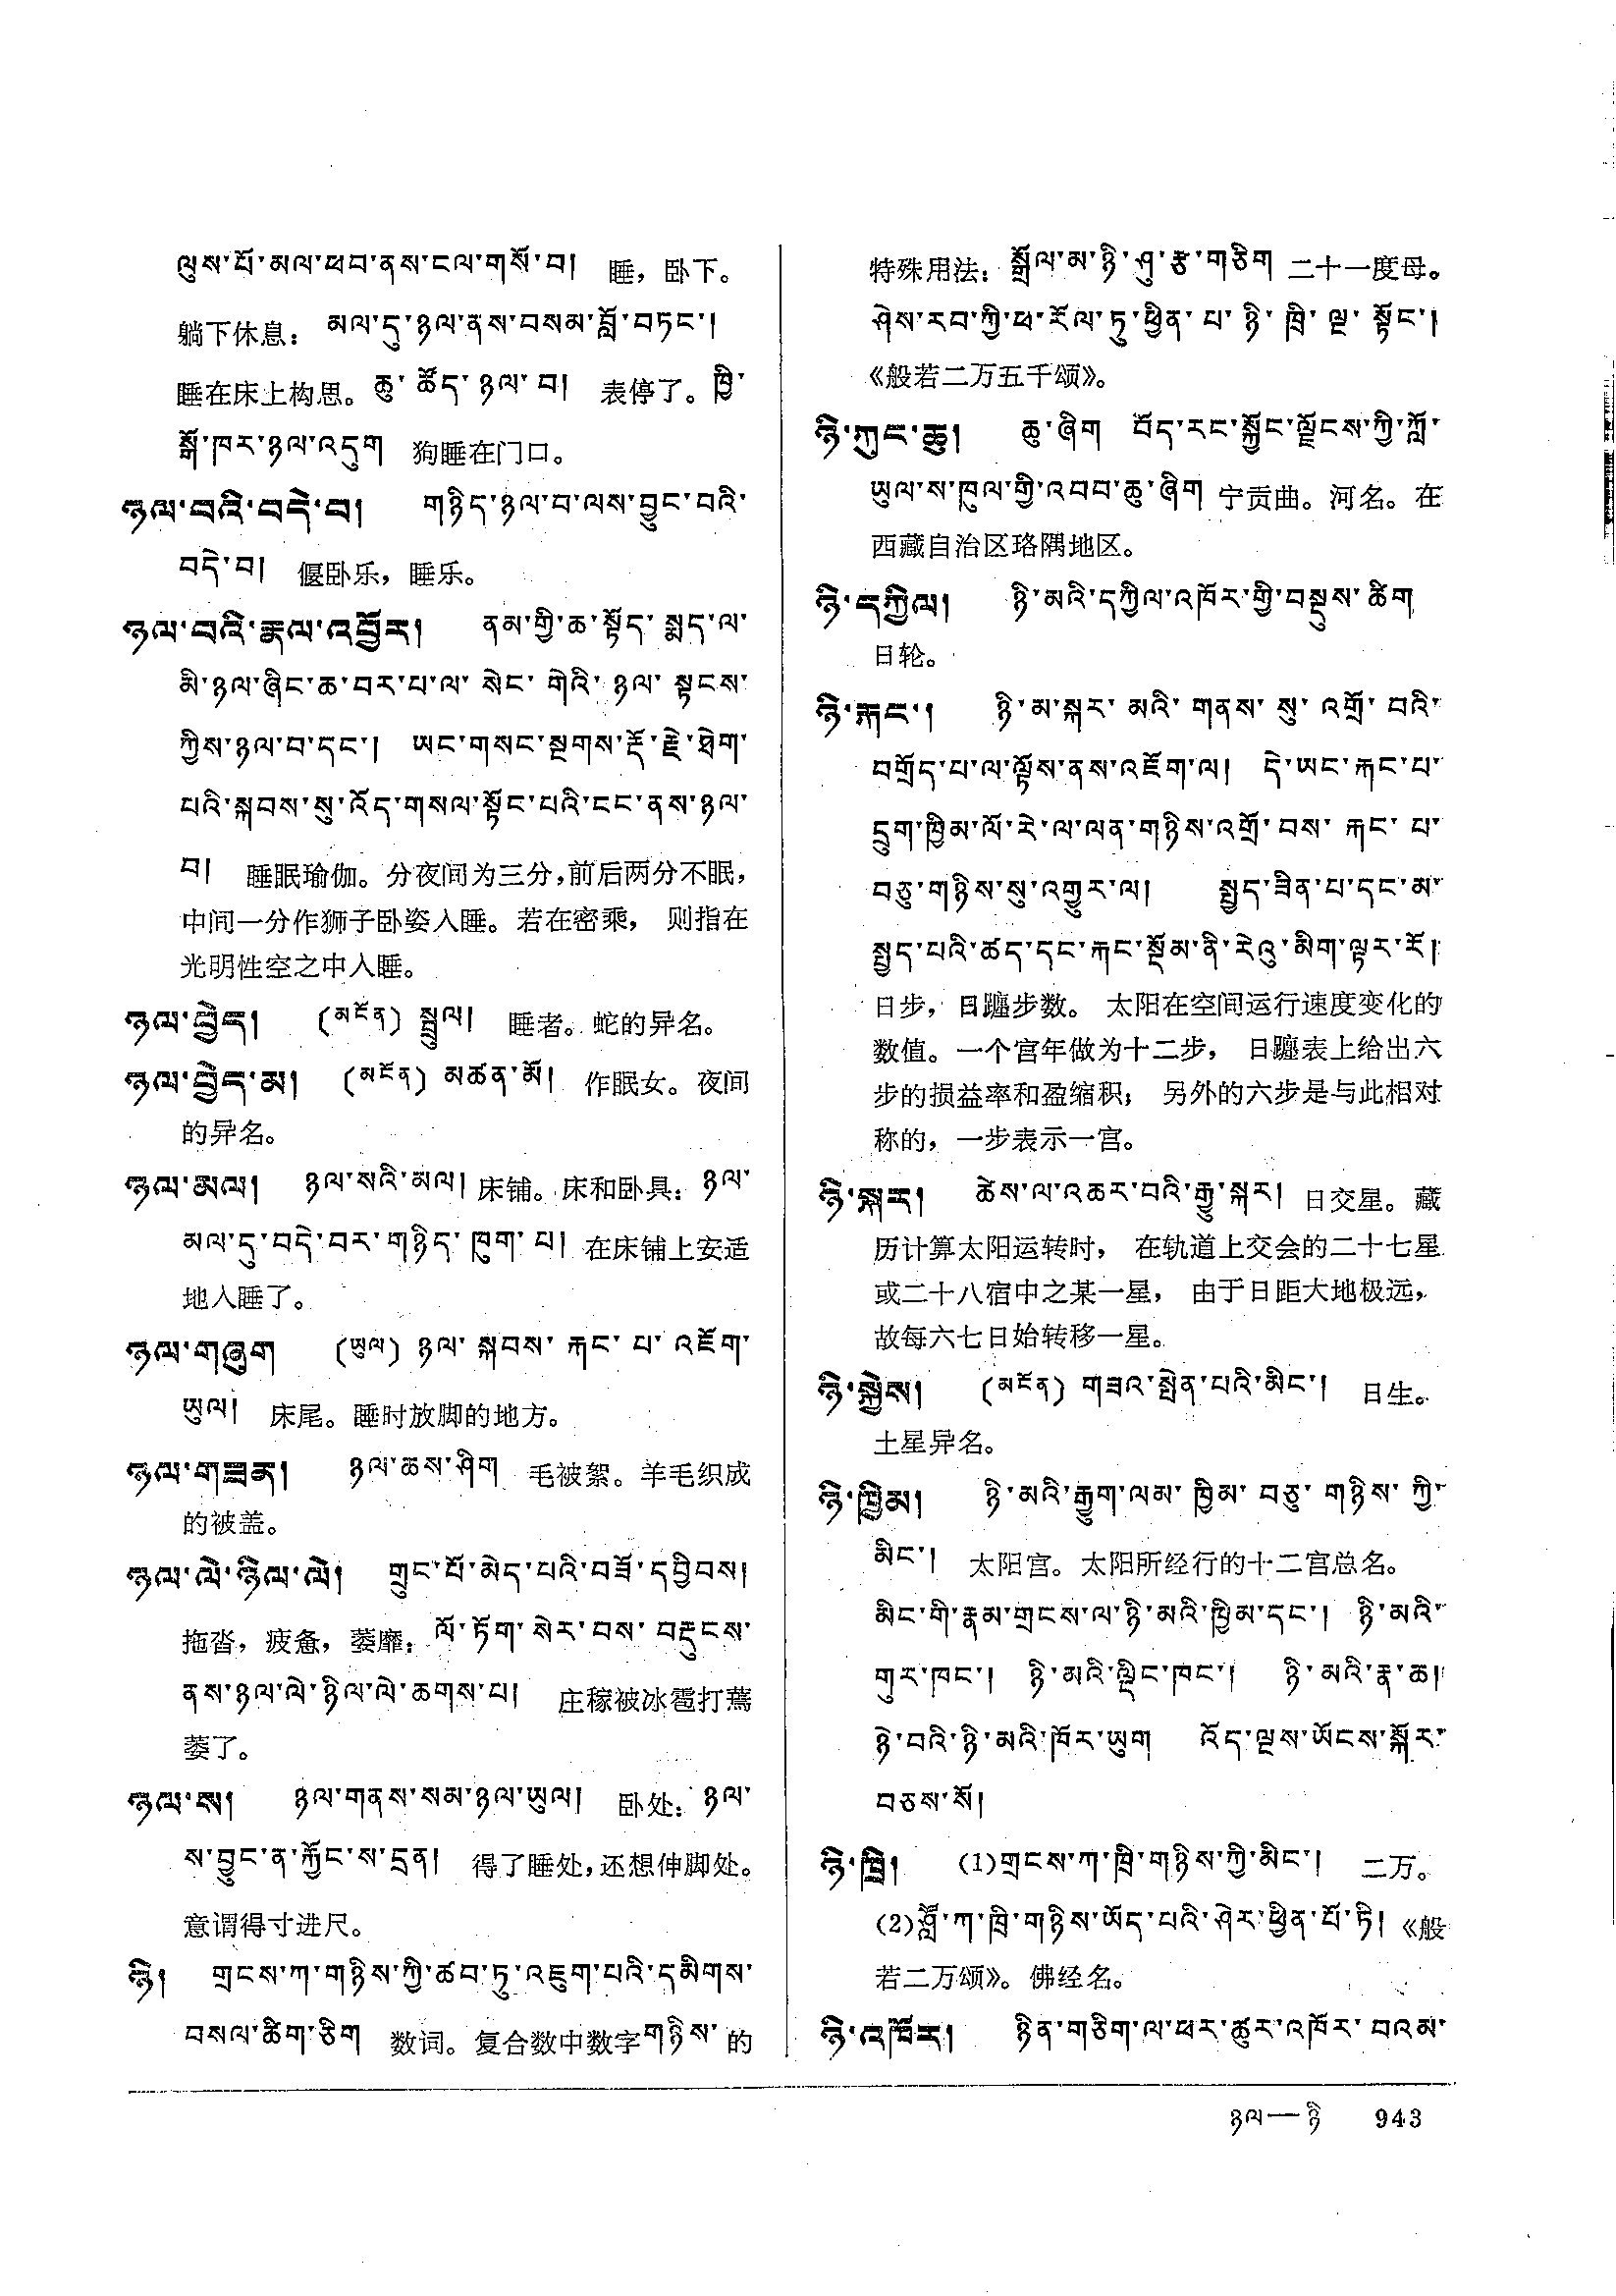 ལུས་པོ་མལ་ཕབ་ནས་ངལ་གསོ་བ། 睡，卧下。
躺下休息： མལ་དུ་ཉལ་ནས་བསམ་བློ་བཏང་།
睡在床上构思。 ཆུ་ཚོད་ཉལ་བ། 表停了。 ཁྱི་
སྒོ་ཁར་ཉལ་འདུག 狗睡在门口。
ཉལ་བའི་བདེ་བ། གཉིད་ཉལ་བ་ལས་བྱུང་བའི་
བདེ་བ། 偃卧乐，睡乐。
ཉལ་བའི་རྣལ་འབྱོར། ནམ་གྱི་ཆ་སྟོད་སྨད་ལ་
མི་ཉལ་ཞིང་ཆ་བར་པ་ལ་སེང་གེའི་ཉལ་སྟངས་
ཀྱིས་ཉལ་བ་དང་། ཡང་གསང་སྔགས་རྡོ་རྗེ་ཐེག་
པའི་སྐབས་སུ་འོད་གསལ་སྟོང་པའི་ངང་ནས་ཉལ་
བ། 睡眠瑜伽。分夜间为三分，前后两分不眠，
中间一分作狮子卧姿入睡。若在密乘，则指在
光明性空之中入睡。
ཉལ་བྱེད། (མངོན) སྦྲུལ། 睡者。蛇的异名。
ཉལ་བྱེད་མ། (མངོན) མཚན་མོ། 作眠女。夜间
的异名。
ཉལ་མལ། ཉལ་སའི་མལ། 床铺。床和卧具： ཉལ་
མལ་དུ་བདེ་བར་གཉིད་ཁུག་པ། 在床铺上安适
地入睡了。
ཉལ་གཞུག (ཡུལ) ཉལ་སྐབས་རྐང་པ་འཇོག་
ཡུལ། 床尾。睡时放脚的地方。
ཉལ་གཟན། ཉལ་ཆས་ཤིག 毛被絮。羊毛织成
的被盖。
ཉལ་ལེ་ཉིལ་ལེ། གྲུང་པོ་མེད་པའི་བཟོ་དབྱིབས།
拖沓，疲惫，萎靡： ལོ་ཏོག་སེར་བས་བརྡུངས་
ནས་ཉལ་ལེ་ཉིལ་ལེ་ཆགས་པ། 庄稼被冰雹打蔫
萎了。
ཉལ་ས། ཉལ་གནས་སམ་ཉལ་ཡུལ། 卧处： ཉལ་
ས་བྱུང་ན་རྐྱོང་ས་དྲན། 得了睡处，还想伸脚处。
意谓得寸进尺。
ཉི། གྲངས་ཀ་གཉིས་ཀྱི་ཚབ་ཏུ་འཇུག་པའི་དམིགས་
བསལ་ཚིག་ཅིག 数词。复合数中数字གཉིས་的
特殊用法： སྒྲོལ་མ་ཉི་ཤུ་རྩ་གཅིག 二十一度母。
ཤེས་རབ་ཀྱི་ཕ་རོལ་ཏུ་ཕྱིན་པ་ཉི་ཁྲི་ལྔ་སྟོང་།
《般若二万五千颂》。
ཉི་ཀུང་ཆུ། ཆུ་ཞིག བོད་རང་སྐྱོང་ལྗོངས་ཀྱི་ཀློ་
ཡུལ་ས་ཁུལ་གྱི་འབབ་ཆུ་ཞིག 宁贡曲。河名。在
西藏自治区珞隅地区。
ཉི་དཀྱིལ། ཉི་མའི་དཀྱིལ་འཁོར་གྱི་བསྡུས་ཚིག
日轮。
ཉི་རྐང་། ཉི་མ་སྐར་མའི་གནས་སུ་འགྲོ་བའི་
བགྲོད་པ་ལ་ལྟོས་ནས་འཇོག་ལ། དེ་ཡང་རྐང་པ་
དྲུག་ཁྱིམ་ལོ་རེ་ལ་ལན་གཉིས་འགྲོ་བས་རྐང་པ་
བཅུ་གཉིས་སུ་འགྱུར་ལ། སྤྱད་ཟིན་པ་དང་མ་
སྤྱད་པའི་ཚད་དང་རྐང་སྡོམ་ནི་རེའུ་མིག་ལྟར་རོ།
日步，日躔步数。太阳在空间运行速度变化的
数值。一个宫年做为十二步，日躔表上给出六
步的损益率和盈缩积；另外的六步是与此相对
称的，一步表示一宫。
ཉི་སྐར། ཚེས་ལ་འཆར་བའི་རྒྱུ་སྐར། 日交星。藏
历计算太阳运转时，在轨道上交会的二十七星
或二十八宿中之某一星，由于日距大地极远，
故每六七日始转移一星。
ཉི་སྐྱེས། (མངོན) གཟའ་སྤེན་པའི་མིང་། 日生。
土星异名。
ཉི་ཁྱིམ། ཉི་མའི་རྒྱུག་ལམ་ཁྱིམ་བཅུ་གཉིས་ཀྱི་
མིང་། 太阳宫。太阳所经行的十二宫总名。
མིང་གི་རྣམ་གྲངས་ལ་ཉི་མའི་ཁྱིམ་དང་། ཉི་མའི་
གུར་ཁང་། ཉི་མའི་ལྡིང་ཁང་། ཉི་མའི་རྣ་ཆ།
ཉེ་བའི་ཉི་མའི་ཁོར་ཡུག འོད་ལྔས་ཡོངས་སྐོར་
བཅས་སོ།
ཉི་ཁྲི། (1)གྲངས་ཀ་ཁྲི་གཉིས་ཀྱི་མིང་། 二万。
(2)ཤློ་ཀ་ཁྲི་གཉིས་ཡོད་པའི་ཤེར་ཕྱིན་པོ་ཏི། 《般
若二万颂》。佛经名。
ཉི་འཁོར། ཉིན་གཅིག་ལ་ཕར་ཚུར་འཁོར་བའམ་
ཉལ—ཉི 943